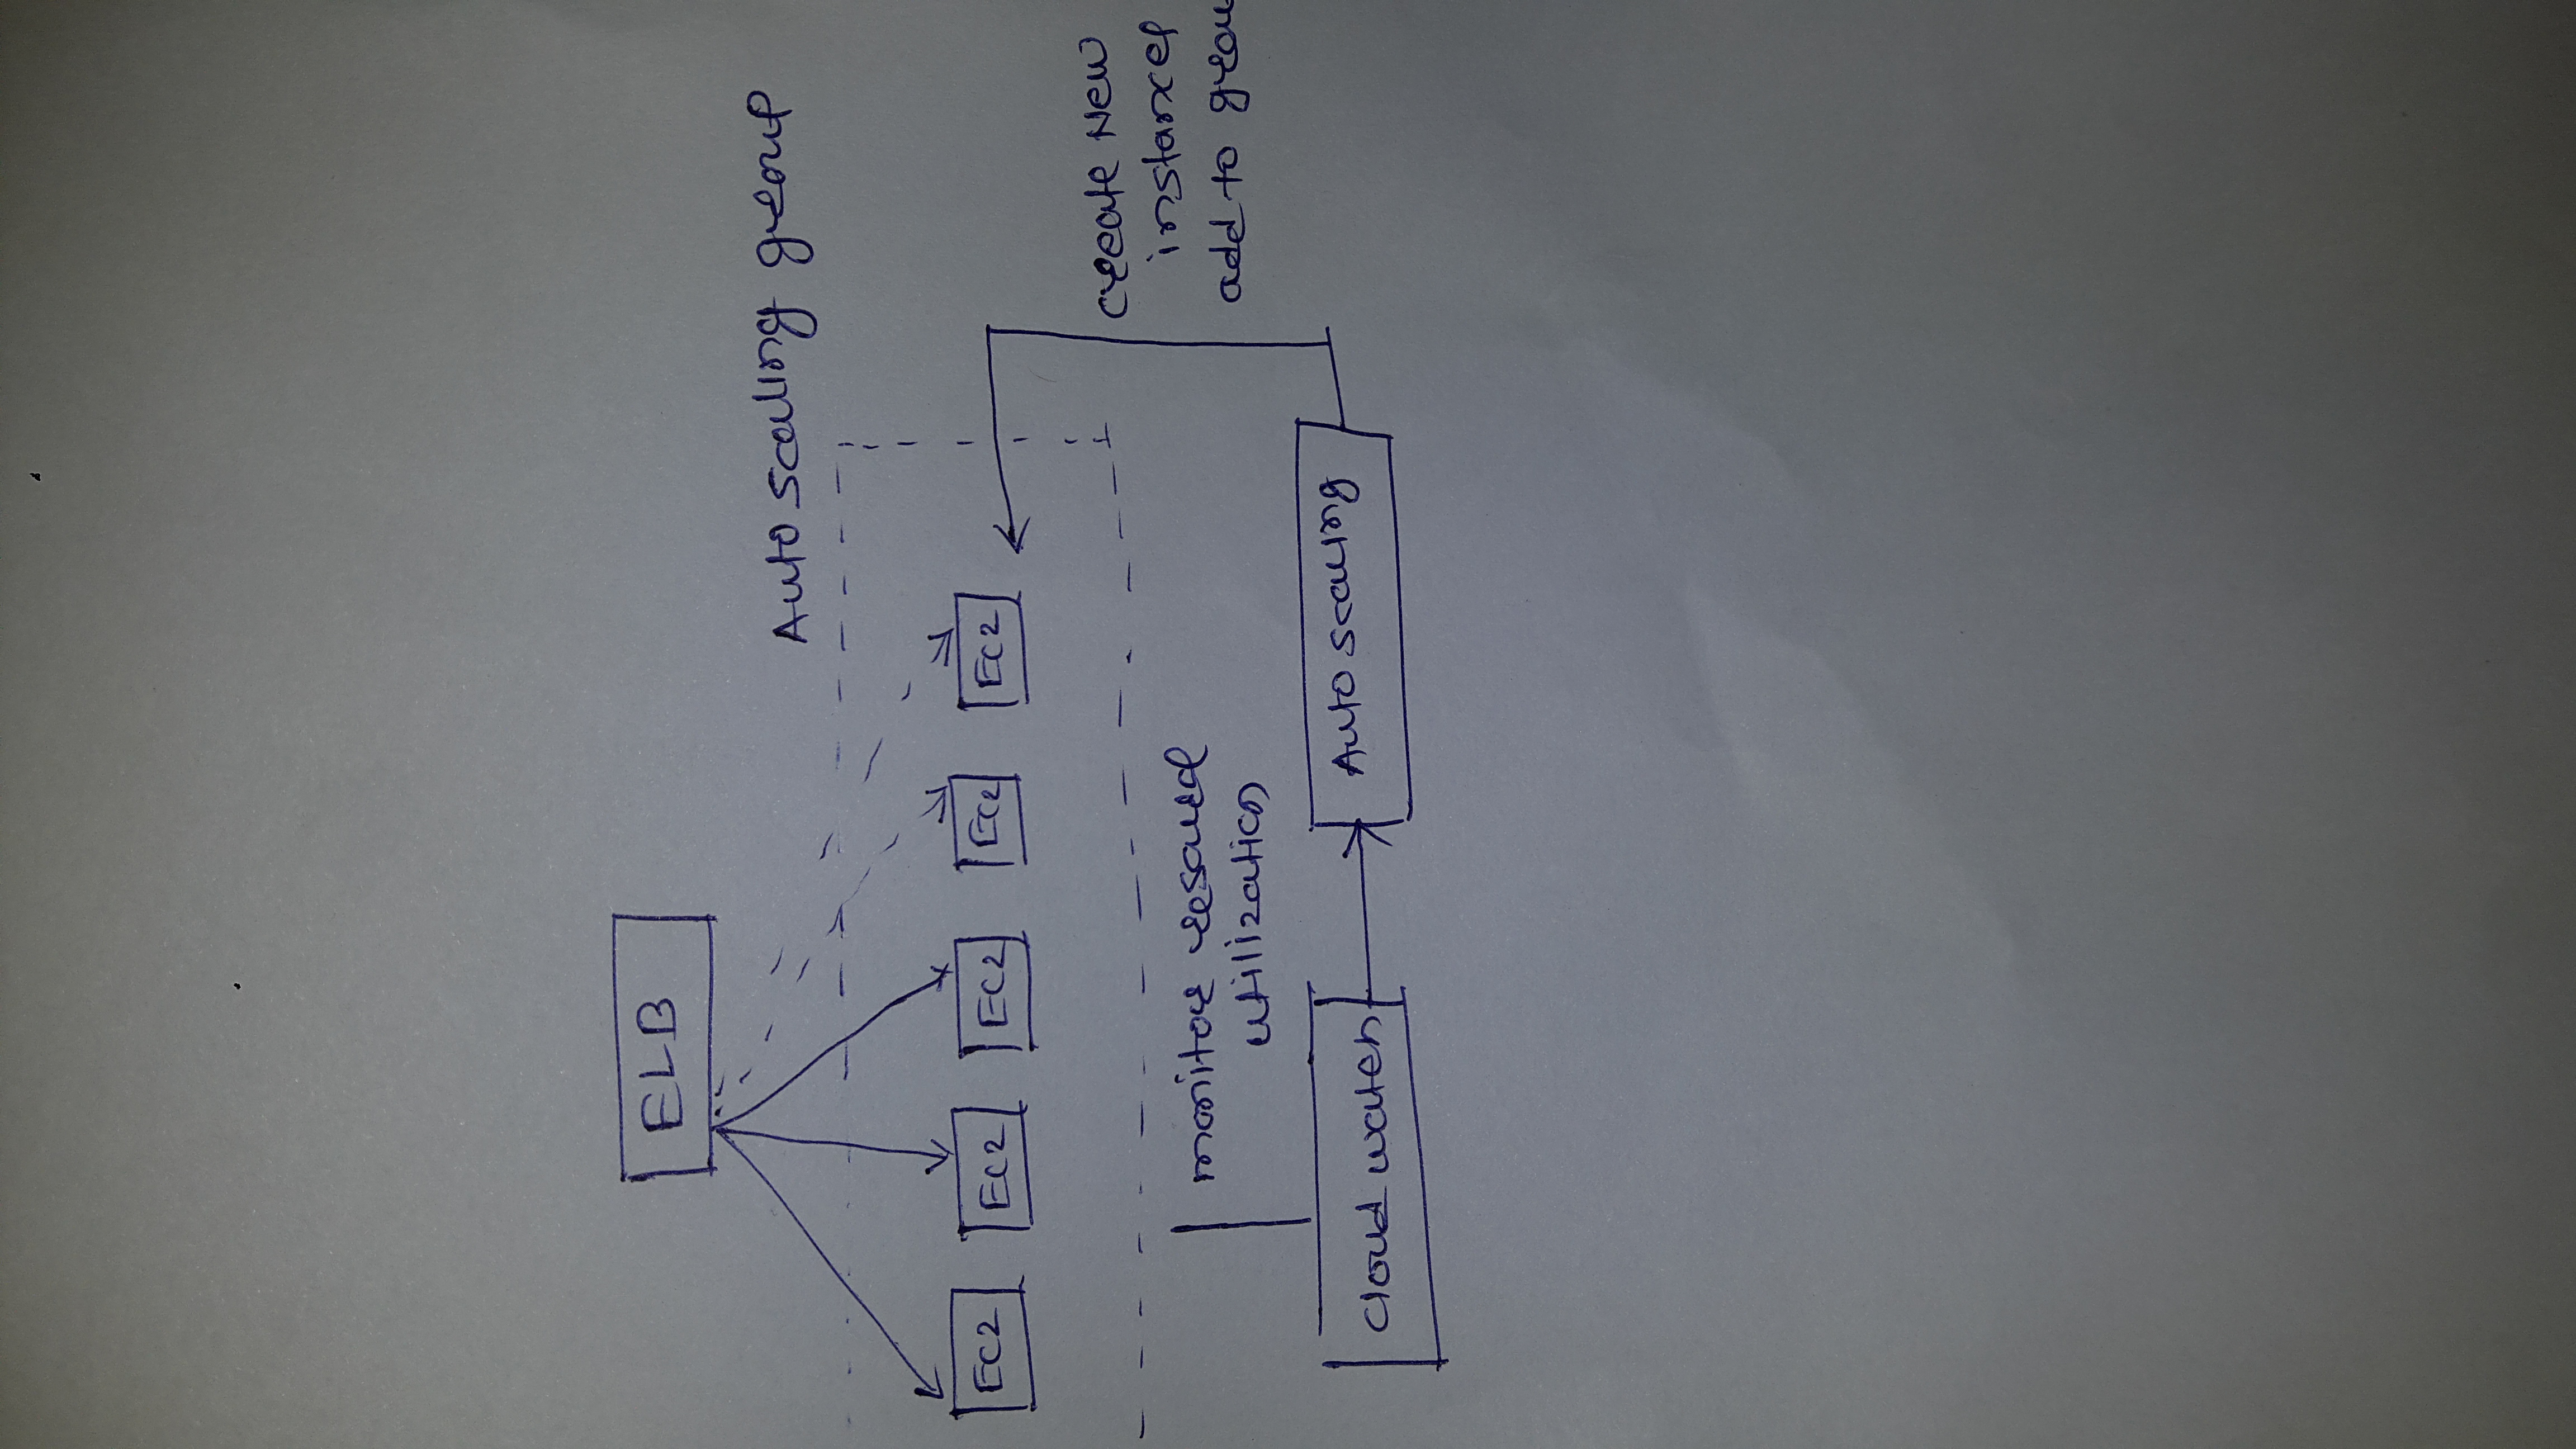 ELB
Auto scaling group
EC2 EC2 EC2 EC2 EC2
create New
instances
add to grou
monitor resource
utilization
cloud watch
Auto scaling